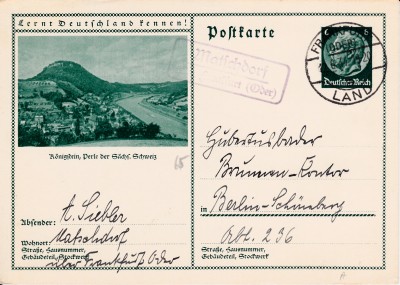 Lernt Deutschland kennen!
Postkarte
6 6
Deutsches Reich
LAND
Matschdorf
(Oder)
Königstein, Perle der Sächs. Schweiz
65
Absender: A. Siebler
Wohnort: Matschdorf
Straße, Hausnummer,
Gebäudeteil, Stockwerk
über Frankfurt Oder
Hubertusbader
Brunnen-Kontor
in Berlin-Schöneberg
Abt. 236
Straße, Hausnummer,
Gebäudeteil, Stockwerk